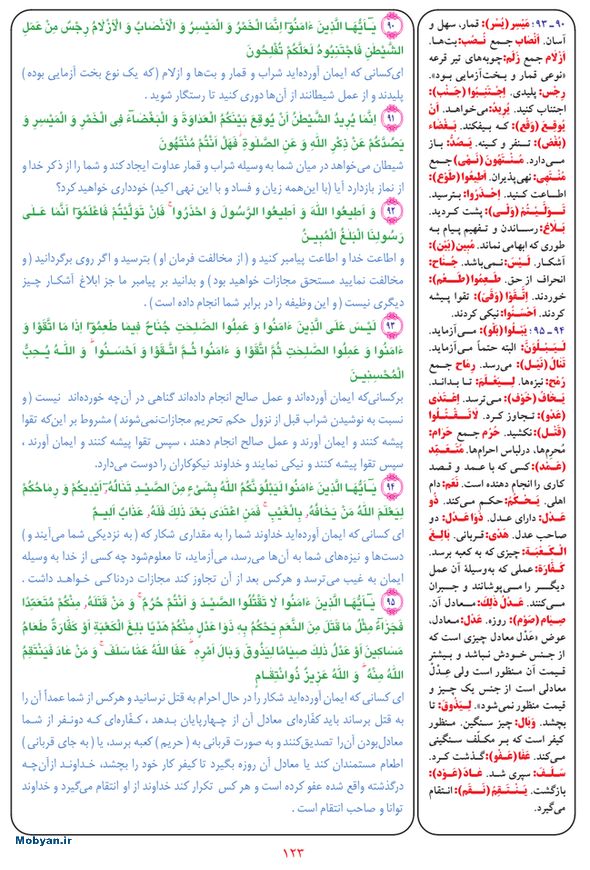 ۹۰ یَـٰٓأَیُّهَا الَّذِینَ ءَامَنُوٓا۟ إِنَّمَا الْخَمْرُ وَ الْمَیْسِرُ وَ الْأَنْصَابُ وَ الْأَزْلَـٰمُ رِجْسٌ مِنْ عَمَلِ
الشَّیْطَـٰنِ فَاجْتَنِبُوهُ لَعَلَّكُمْ تُفْلِحُونَ
ای‌کسانی که ایمان آورده‌اید شراب و قمار و بت‌ها و ازلام ( که یک نوع بخت آزمایی بوده )
پلیدند و از عمل شیطانند از آن‌ها دوری کنید تا رستگار شوید .
۹۱ إِنَّمَا یُرِیدُ الشَّیْطَـٰنُ أَنْ یُوقِعَ بَیْنَكُمُ الْعَدَاوَةَ وَ الْبَغْضَآءَ فِی الْخَمْرِ وَ الْمَیْسِرِ وَ
یَصُدَّكُمْ عَنْ ذِكْرِ اللَّهِ وَ عَنِ الصَّلَوٰةِ ۖ فَهَلْ أَنْتُمْ مُنْتَهُونَ
شیطان می‌خواهد در میان شما به وسیله شراب و قمار عداوت ایجاد کند و شما را از ذکر خدا و
از نماز بازدارد آیا (با این‌همه زیان و فساد و با این نهی اکید) خودداری خواهید کرد؟
۹۲ وَ أَطِیعُوا اللَّهَ وَ أَطِیعُوا الرَّسُولَ وَ احْذَرُوا ۚ فَإِنْ تَوَلَّیْتُمْ فَاعْلَمُوٓا أَنَّمَا عَلَی
رَسُولِنَا الْبَلَـٰغُ الْمُبِینُ
و اطاعت خدا و اطاعت پیامبر کنید و ( از مخالفت فرمان او ) بترسید و اگر روی برگردانید ( و
مخالفت نمایید مستحق مجازات خواهید بود ) و بدانید بر پیامبر ما جز ابلاغ آشکار چیز
دیگری نیست ( و این وظیفه را در برابر شما انجام داده است ) .
۹۳ لَیْسَ عَلَی الَّذِینَ ءَامَنُوا وَ عَمِلُوا الصَّـٰلِحَـٰتِ جُنَاحٌ فِیمَا طَعِمُوٓا إِذَا مَا اتَّقَوْا وَ
ءَامَنُوا وَ عَمِلُوا الصَّـٰلِحَـٰتِ ثُمَّ اتَّقَوْا وَ ءَامَنُوا ثُمَّ اتَّقَوْا وَ أَحْسَنُوا ۗ وَ اللَّهُ یُحِبُّ
الْمُحْسِنِینَ
برکسانی‌که ایمان آورده‌اند و عمل صالح انجام داده‌اند گناهی در آن‌چه خورده‌اند نیست ( و
نسبت به نوشیدن شراب قبل از نزول حکم تحریم مجازات‌نمی‌شوند ) مشروط بر این‌که تقوا
پیشه کنند و ایمان آورند و عمل صالح انجام دهند ، سپس تقوا پیشه کنند و ایمان آورند ،
سپس تقوا پیشه کنند و نیکی نمایند و خداوند نیکوکاران را دوست می‌دارد.
۹۴ یَـٰٓأَیُّهَا الَّذِینَ ءَامَنُوا لَیَبْلُوَنَّكُمُ اللَّهُ بِشَیْءٍ مِنَ الصَّیْدِ تَنَالُهُٓ أَیْدِیكُمْ وَ رِمَاحُكُمْ
لِیَعْلَمَ اللَّهُ مَنْ یَخَافُهُ بِالْغَیْبِ ۚ فَمَنِ اعْتَدَی بَعْدَ ذَٰلِكَ فَلَهُ عَذَابٌ أَلِیمٌ
ای کسانی که ایمان آورده‌اید خداوند شما را به مقداری شکار که ( به نزدیکی شما می‌آیند و )
دست‌ها و نیزه‌های شما به آن‌ها می‌رسد، می‌آزماید، تا معلوم‌شود چه کسی از خدا به وسیله
ایمان به غیب می‌ترسد و هرکس بعد از آن تجاوز کند مجازات دردناکی خواهد داشت .
۹۵ یَـٰٓأَیُّهَا الَّذِینَ ءَامَنُوا لَا تَقْتُلُوا الصَّیْدَ وَ أَنْتُمْ حُرُمٌ ۚ وَ مَنْ قَتَلَهُ مِنْكُمْ مُتَعَمِّدًا
فَجَزَآءٌ مِثْلُ مَا قَتَلَ مِنَ النَّعَمِ یَحْكُمُ بِهِ ذَوَا عَدْلٍ مِنْكُمْ هَدْیًا بَـٰلِغَ الْكَعْبَةِ أَوْ كَفَّارَةٌ طَعَامُ
مَسَاكِینَ أَوْ عَدْلُ ذَٰلِكَ صِیَامًا لِیَذُوقَ وَبَالَ أَمْرِهِ ۗ عَفَا اللَّهُ عَمَّا سَلَفَ ۚ وَ مَنْ عَادَ فَیَنْتَقِمُ
اللَّهُ مِنْهُ ۗ وَ اللَّهُ عَزِیزٌ ذُو انْتِقَامٍ
ای کسانی که ایمان آورده‌اید شکار را در حال احرام به قتل نرسانید و هرکس از شما عمداً آن را
به قتل برساند باید کفّاره‌ای معادل آن از چهارپایان بدهد ، کفّاره‌ای که دونفر از شما
معادل‌بودن آن‌را تصدیق‌کنند و به صورت قربانی به ( حریم ) کعبه برسد، یا ( به جای قربانی )
اطعام مستمندان کند یا معادل آن روزه بگیرد تا کیفر کار خود را بچشد، خداوند ازآن‌چه
درگذشته واقع شده عفو کرده است و هر کس تکرار کند خداوند از او انتقام می‌گیرد و خداوند
توانا و صاحب انتقام است .
۹۰ـ ۹۳: مَیْسِر (یُسْر): قمار، سهل و
آسان. أَنْصَاب جمع نُصُب: بت‌ها.
أَزْلَام جمع زَلَم: چوبه‌های تیر قرعه
«نوعی قمار و بخت‌آزمایی بود».
رِجْس: پلیدی. اِجْتَنِبُوا (جَنْب):
اجتناب کنید. یُرِیدُ: می‌خواهد. أَنْ
یُوقِعَ (وَقْع): که بیفکند. بَغْضَاء
(بُغْض): تنفر و کینه. یَصُدَّ: باز
می‌دارد. مُنْتَهُونَ (نَهْی) جمع
مُنْتَهِی: نهی‌پذیران. أَطِیعُوا (طَوْع):
اطاعت کنید. اِحْذَرُوا: بترسید.
تَوَلَّیْتُمْ (وَلْی): پشت کردید.
بَلَاغ: رساندن و تفهیم پیام به
طوری که ابهامی نماند. مُبِین (بَیْن):
آشکار. لَیْسَ: نمی‌باشد. جُنَاح:
انحراف از حق. طَعِمُوا (طَعْم):
خوردند. اِتَّقَوْا (وَقْی): تقوا پیشه
کردند. أَحْسَنُوا: نیکی کردند.
۹۴ـ ۹۵: یَبْلُوَ (بَلْو): می‌آزماید.
لَیَبْلُوَنَّ: البته حتماً می‌آزماید.
تَنَالُ (نَیْل): می‌رسد. رِمَاح جمع
رُمْح: نیزه‌ها. لِیَعْلَمَ: تا بداند.
یَخَافُ (خَوْف): می‌ترسد. اِعْتَدَی
(عَدْو): تجاوز کرد. لَا تَقْتُلُوا
(قَتْل): نکشید. حُرُم جمع حَرَام:
مُحرِم‌ها، درلباس احرام‌ها. مُتَعَمِّد
(عَمْد): کسی که با عمد و قصد
کاری را انجام دهنده است. نَعَم: دام
اهلی. یَحْكُمُ: حکم می‌کند. ذُو
عَدْل: دارای عدل. ذَوَا عَدْل: دو
صاحب عدل. هَدْی: قربانی. بَالِغَ
الْكَعْبَة: چیزی که به کعبه برسد.
كَفَّارَة: عملی که به‌وسیلهٔ آن عمل
دیگر را می‌پوشانند و جبران
می‌کنند. عَدْلُ ذَلِكَ: معادل آن.
صِیَام (صَوْم): روزه. عَدْل: معادل،
عوض «عَدْل معادل چیزی است که
از جنس خودش نباشد و بیشتر
قیمت آن منظور است ولی عِدْلْ
معادلی است از جنس یک چیز و
قیمت منظور نمی‌شود». لِیَذُوقَ: تا
بچشد. وَبَال: چیز سنگین. منظور
کیفر است که بر مکلّف سنگینی
می‌کند. عَفَا (عَفْو): گذشت کرد.
سَلَفَ: سپری شد. عَادَ (عَوْد):
بازگشت. یَنْتَقِمُ (نَقْم): انتقام
می‌گیرد.
۱۲۳
Mobyan.ir